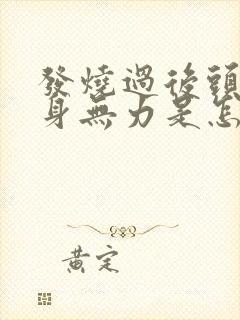 發燒過後頭
身無力是怎
黃定